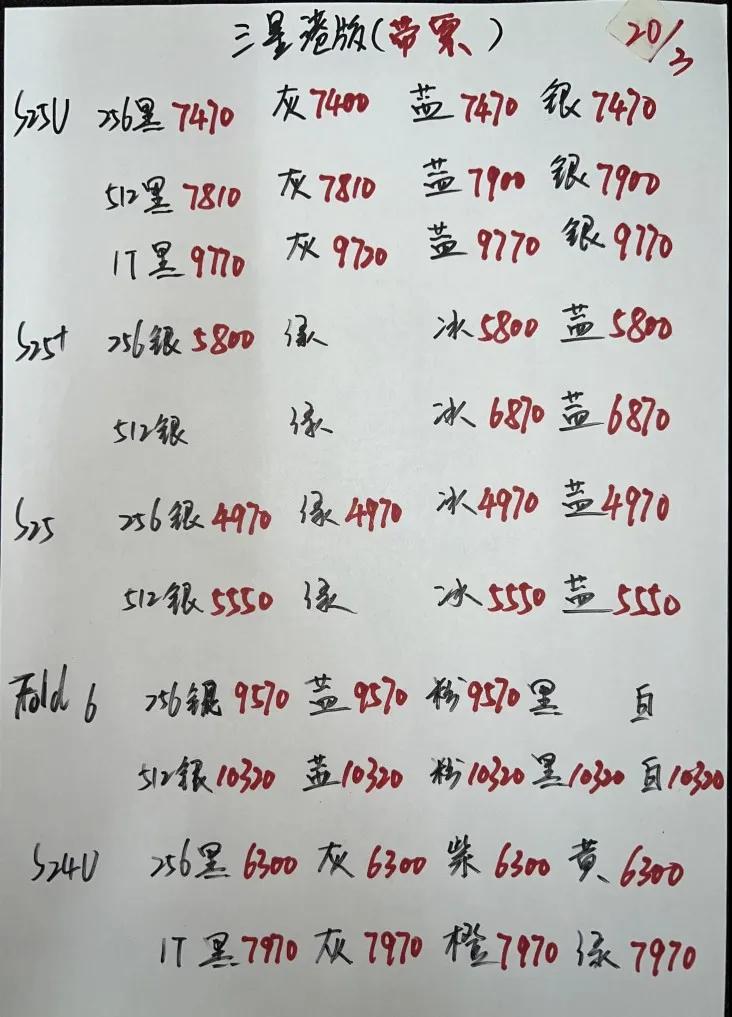 三星港版(带票) 20/3
S25U 256黑7470 灰7400 蓝7470 银7470
512黑7810 灰7810 蓝7900 银7900
1T黑9770 灰9720 蓝9770 银9770
S25+ 256银5800 绿 冰5800 蓝5800
512银 绿 冰6870 蓝6870
S25 256银4970 绿4970 冰4970 蓝4970
512银5550 绿 冰5550 蓝5550
Fold 6 256银9570 蓝9570 粉9570 黑 白
512银10320 蓝10320 粉10320 黑10320 白10320
S24U 256黑6300 灰6300 紫6300 黄6300
1T黑7970 灰7970 橙7970 绿7970